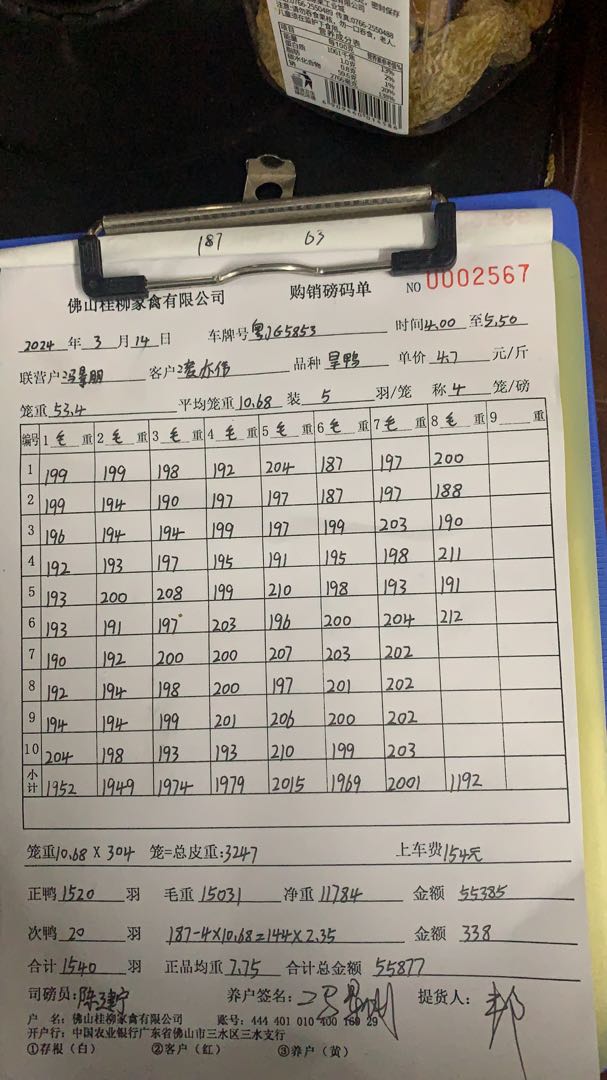 营养成分表
187 63
佛山桂柳家禽有限公司 购销磅码单 NO 0002567
2024 年 3 月 14 日 车牌号 粤JG5853 时间 4.00 至 5.50
联营户 冯景朋 客户 品种 旱鸭 单价 4.7 元/斤
笼重 53.4 平均笼重 10.68 装 5 羽/笼 称 4 笼/磅
编号 1 毛 重 2 毛 重 3 毛 重 4 毛 重 5 毛 重 6 毛 重 7 毛 重 8 毛 重 9 重
1 199 199 198 192 204 187 197 200
2 199 194 190 197 197 187 197 188
3 196 194 194 199 197 199 203 190
4 192 193 197 195 191 195 198 211
5 193 200 208 199 210 198 193 191
6 193 191 197 203 196 200 204 212
7 190 192 200 200 207 203 202
8 192 194 198 200 197 201 202
9 194 194 199 201 206 200 202
10 204 198 193 193 210 199 203
小计 1952 1949 1974 1979 2015 1969 2001 1192
笼重 10.68 X 304 笼=总皮重: 3247 上车费 154元
正鸭 1520 羽 毛重 15031 净重 11784 金额 55385
次鸭 20 羽 187-4×10.68=144×2.35 金额 338
合计 1540 羽 正品均重 7.75 合计总金额 55877
司磅员: 养户签名: 提货人:
户 名: 佛山桂柳家禽有限公司 账号: 444 401 010 400 160 29
开户行: 中国农业银行广东省佛山市三水区三水支行
①存根（白） ②客户（红） ③养户（黄）